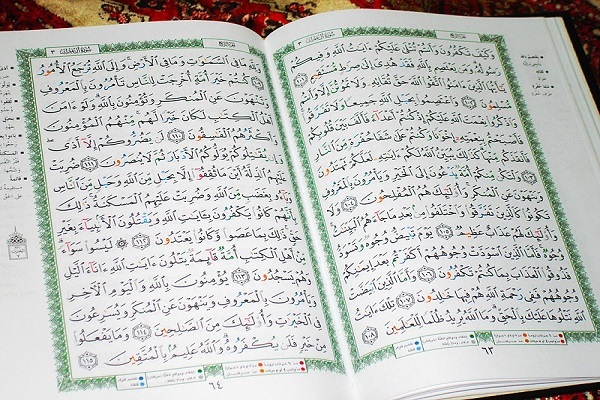 سُورَةُ آلِ عِمْرَان ٣
وَكَيْفَ تَكْفُرُونَ وَأَنتُمْ تُتْلَىٰ عَلَيْكُمْ ءَايَٰتُ ٱللَّهِ وَفِيكُمْ
رَسُولُهُۥ وَمَن يَعْتَصِم بِٱللَّهِ فَقَدْ هُدِىَ إِلَىٰ صِرَٰطٍ مُّسْتَقِيمٍ ١٠١
يَٰٓأَيُّهَا ٱلَّذِينَ ءَامَنُوا۟ ٱتَّقُوا۟ ٱللَّهَ حَقَّ تُقَاتِهِۦ وَلَا تَمُوتُنَّ إِلَّا وَأَنتُم
مُّسْلِمُونَ ١٠٢ وَٱعْتَصِمُوا۟ بِحَبْلِ ٱللَّهِ جَمِيعًا وَلَا تَفَرَّقُوا۟
وَٱذْكُرُوا۟ نِعْمَتَ ٱللَّهِ عَلَيْكُمْ إِذْ كُنتُمْ أَعْدَآءً فَأَلَّفَ بَيْنَ قُلُوبِكُمْ
فَأَصْبَحْتُم بِنِعْمَتِهِۦٓ إِخْوَٰنًا وَكُنتُمْ عَلَىٰ شَفَا حُفْرَةٍ مِّنَ ٱلنَّارِ
فَأَنقَذَكُم مِّنْهَا كَذَٰلِكَ يُبَيِّنُ ٱللَّهُ لَكُمْ ءَايَٰتِهِۦ لَعَلَّكُمْ تَهْتَدُونَ
١٠٣ وَلْتَكُن مِّنكُمْ أُمَّةٌ يَدْعُونَ إِلَى ٱلْخَيْرِ وَيَأْمُرُونَ بِٱلْمَعْرُوفِ
وَيَنْهَوْنَ عَنِ ٱلْمُنكَرِ وَأُو۟لَٰٓئِكَ هُمُ ٱلْمُفْلِحُونَ ١٠٤ وَلَا
تَكُونُوا۟ كَٱلَّذِينَ تَفَرَّقُوا۟ وَٱخْتَلَفُوا۟ مِنۢ بَعْدِ مَا جَآءَهُمُ ٱلْبَيِّنَٰتُ
وَأُو۟لَٰٓئِكَ لَهُمْ عَذَابٌ عَظِيمٌ ١٠٥ يَوْمَ تَبْيَضُّ وُجُوهٌ وَتَسْوَدُّ
وُجُوهٌ فَأَمَّا ٱلَّذِينَ ٱسْوَدَّتْ وُجُوهُهُمْ أَكَفَرْتُم بَعْدَ إِيمَٰنِكُمْ
فَذُوقُوا۟ ٱلْعَذَابَ بِمَا كُنتُمْ تَكْفُرُونَ ١٠٦ وَأَمَّا ٱلَّذِينَ ٱبْيَضَّتْ
وُجُوهُهُمْ فَفِى رَحْمَةِ ٱللَّهِ هُمْ فِيهَا خَٰلِدُونَ ١٠٧ تِلْكَ ءَايَٰتُ
ٱللَّهِ نَتْلُوهَا عَلَيْكَ بِٱلْحَقِّ وَمَا ٱللَّهُ يُرِيدُ ظُلْمًا لِّلْعَٰلَمِينَ ١٠٨
٦٣
سُورَةُ آلِ عِمْرَان ٣
وَلِلَّهِ مَا فِى ٱلسَّمَٰوَٰتِ وَمَا فِى ٱلْأَرْضِ وَإِلَى ٱللَّهِ تُرْجَعُ ٱلْأُمُورُ
١٠٩ كُنتُمْ خَيْرَ أُمَّةٍ أُخْرِجَتْ لِلنَّاسِ تَأْمُرُونَ بِٱلْمَعْرُوفِ
وَتَنْهَوْنَ عَنِ ٱلْمُنكَرِ وَتُؤْمِنُونَ بِٱللَّهِ وَلَوْ ءَامَنَ
أَهْلُ ٱلْكِتَٰبِ لَكَانَ خَيْرًا لَّهُم مِّنْهُمُ ٱلْمُؤْمِنُونَ
وَأَكْثَرُهُمُ ٱلْفَٰسِقُونَ ١١٠ لَن يَضُرُّوكُمْ إِلَّآ أَذًى
وَإِن يُقَٰتِلُوكُمْ يُوَلُّوكُمُ ٱلْأَدْبَارَ ثُمَّ لَا يُنصَرُونَ ١١١ ضُرِبَتْ
عَلَيْهِمُ ٱلذِّلَّةُ أَيْنَ مَا ثُقِفُوٓا۟ إِلَّا بِحَبْلٍ مِّنَ ٱللَّهِ وَحَبْلٍ مِّنَ ٱلنَّاسِ
وَبَآءُو بِغَضَبٍ مِّنَ ٱللَّهِ وَضُرِبَتْ عَلَيْهِمُ ٱلْمَسْكَنَةُ ذَٰلِكَ
بِأَنَّهُمْ كَانُوا۟ يَكْفُرُونَ بِـَٔايَٰتِ ٱللَّهِ وَيَقْتُلُونَ ٱلْأَنۢبِيَآءَ بِغَيْرِ
حَقٍّ ذَٰلِكَ بِمَا عَصَوا۟ وَّكَانُوا۟ يَعْتَدُونَ ١١٢ لَيْسُوا۟ سَوَآءً
مِّنْ أَهْلِ ٱلْكِتَٰبِ أُمَّةٌ قَآئِمَةٌ يَتْلُونَ ءَايَٰتِ ٱللَّهِ ءَانَآءَ ٱلَّيْلِ
وَهُمْ يَسْجُدُونَ ١١٣ يُؤْمِنُونَ بِٱللَّهِ وَٱلْيَوْمِ ٱلْـَٔاخِرِ
وَيَأْمُرُونَ بِٱلْمَعْرُوفِ وَيَنْهَوْنَ عَنِ ٱلْمُنكَرِ وَيُسَٰرِعُونَ
فِى ٱلْخَيْرَٰتِ وَأُو۟لَٰٓئِكَ مِنَ ٱلصَّٰلِحِينَ ١١٤ وَمَا يَفْعَلُوا۟
مِنْ خَيْرٍ فَلَن يُكْفَرُوهُ وَٱللَّهُ عَلِيمٌۢ بِٱلْمُتَّقِينَ ١١٥
٦٤